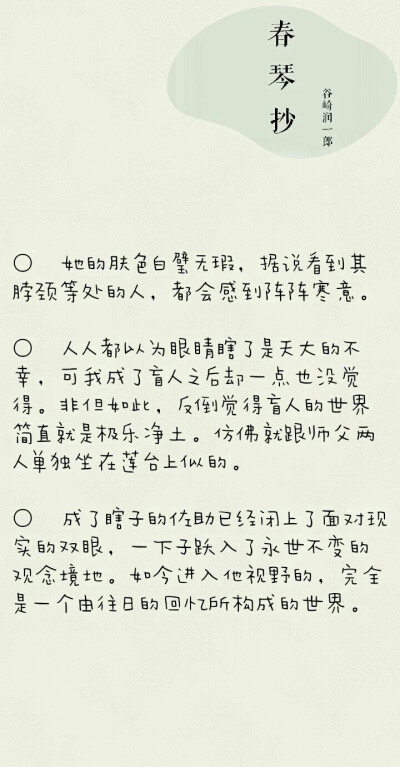 春琴抄
谷崎润一郎
○ 她的肤色白璧无瑕，据说看到其
脖颈等处的人，都会感到阵阵寒意。
○ 人人都以为眼睛瞎了是天大的不
幸，可我成了盲人之后却一点也没觉
得。非但如此，反倒觉得盲人的世界
简直就是极乐净土。仿佛就跟师父两
人单独坐在莲台上似的。
○ 成了瞎子的佐助已经闭上了面对现
实的双眼，一下子跃入了永世不变的
观念境地。如今进入他视野的，完全
是一个由往日的回忆所构成的世界。